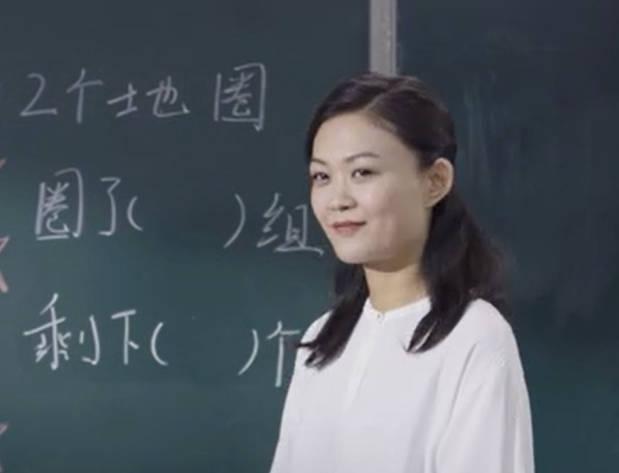 2个土地圈
圈了(　)组
剩下(　)个